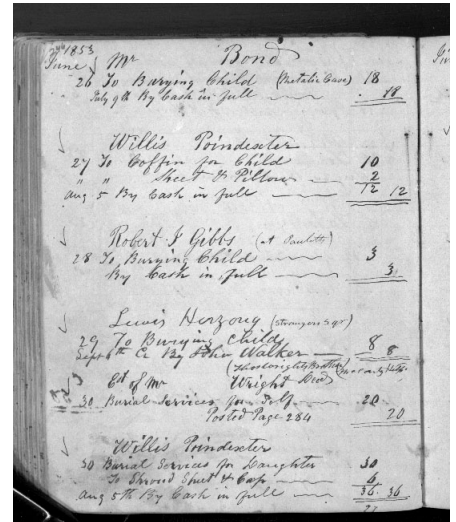 1853
June Mr Bond
26 To Burying Child (Metalic Case) 18
July 9th By Cash in full 18
Willis Poindexter
27 To Coffin for Child 10
" " Sheet & Pillow 2
Aug 5 By Cash in full 12 12
Robert J Gibbs (at Pauletts)
28 To Burying Child 3
By Cash in full 3
Lewis Herzoug (strangers gr)
29 To Burying Child 8
Sept 6th Cr By John Walker 8
Est of Mr Wright Decd
30 Burial Services for Self 20
Posted Page 284 20
Willis Poindexter
30 Burial Services for Daughter 30
To Shroud Sheet & Cap 6
Aug 5th By Cash in full 36 36